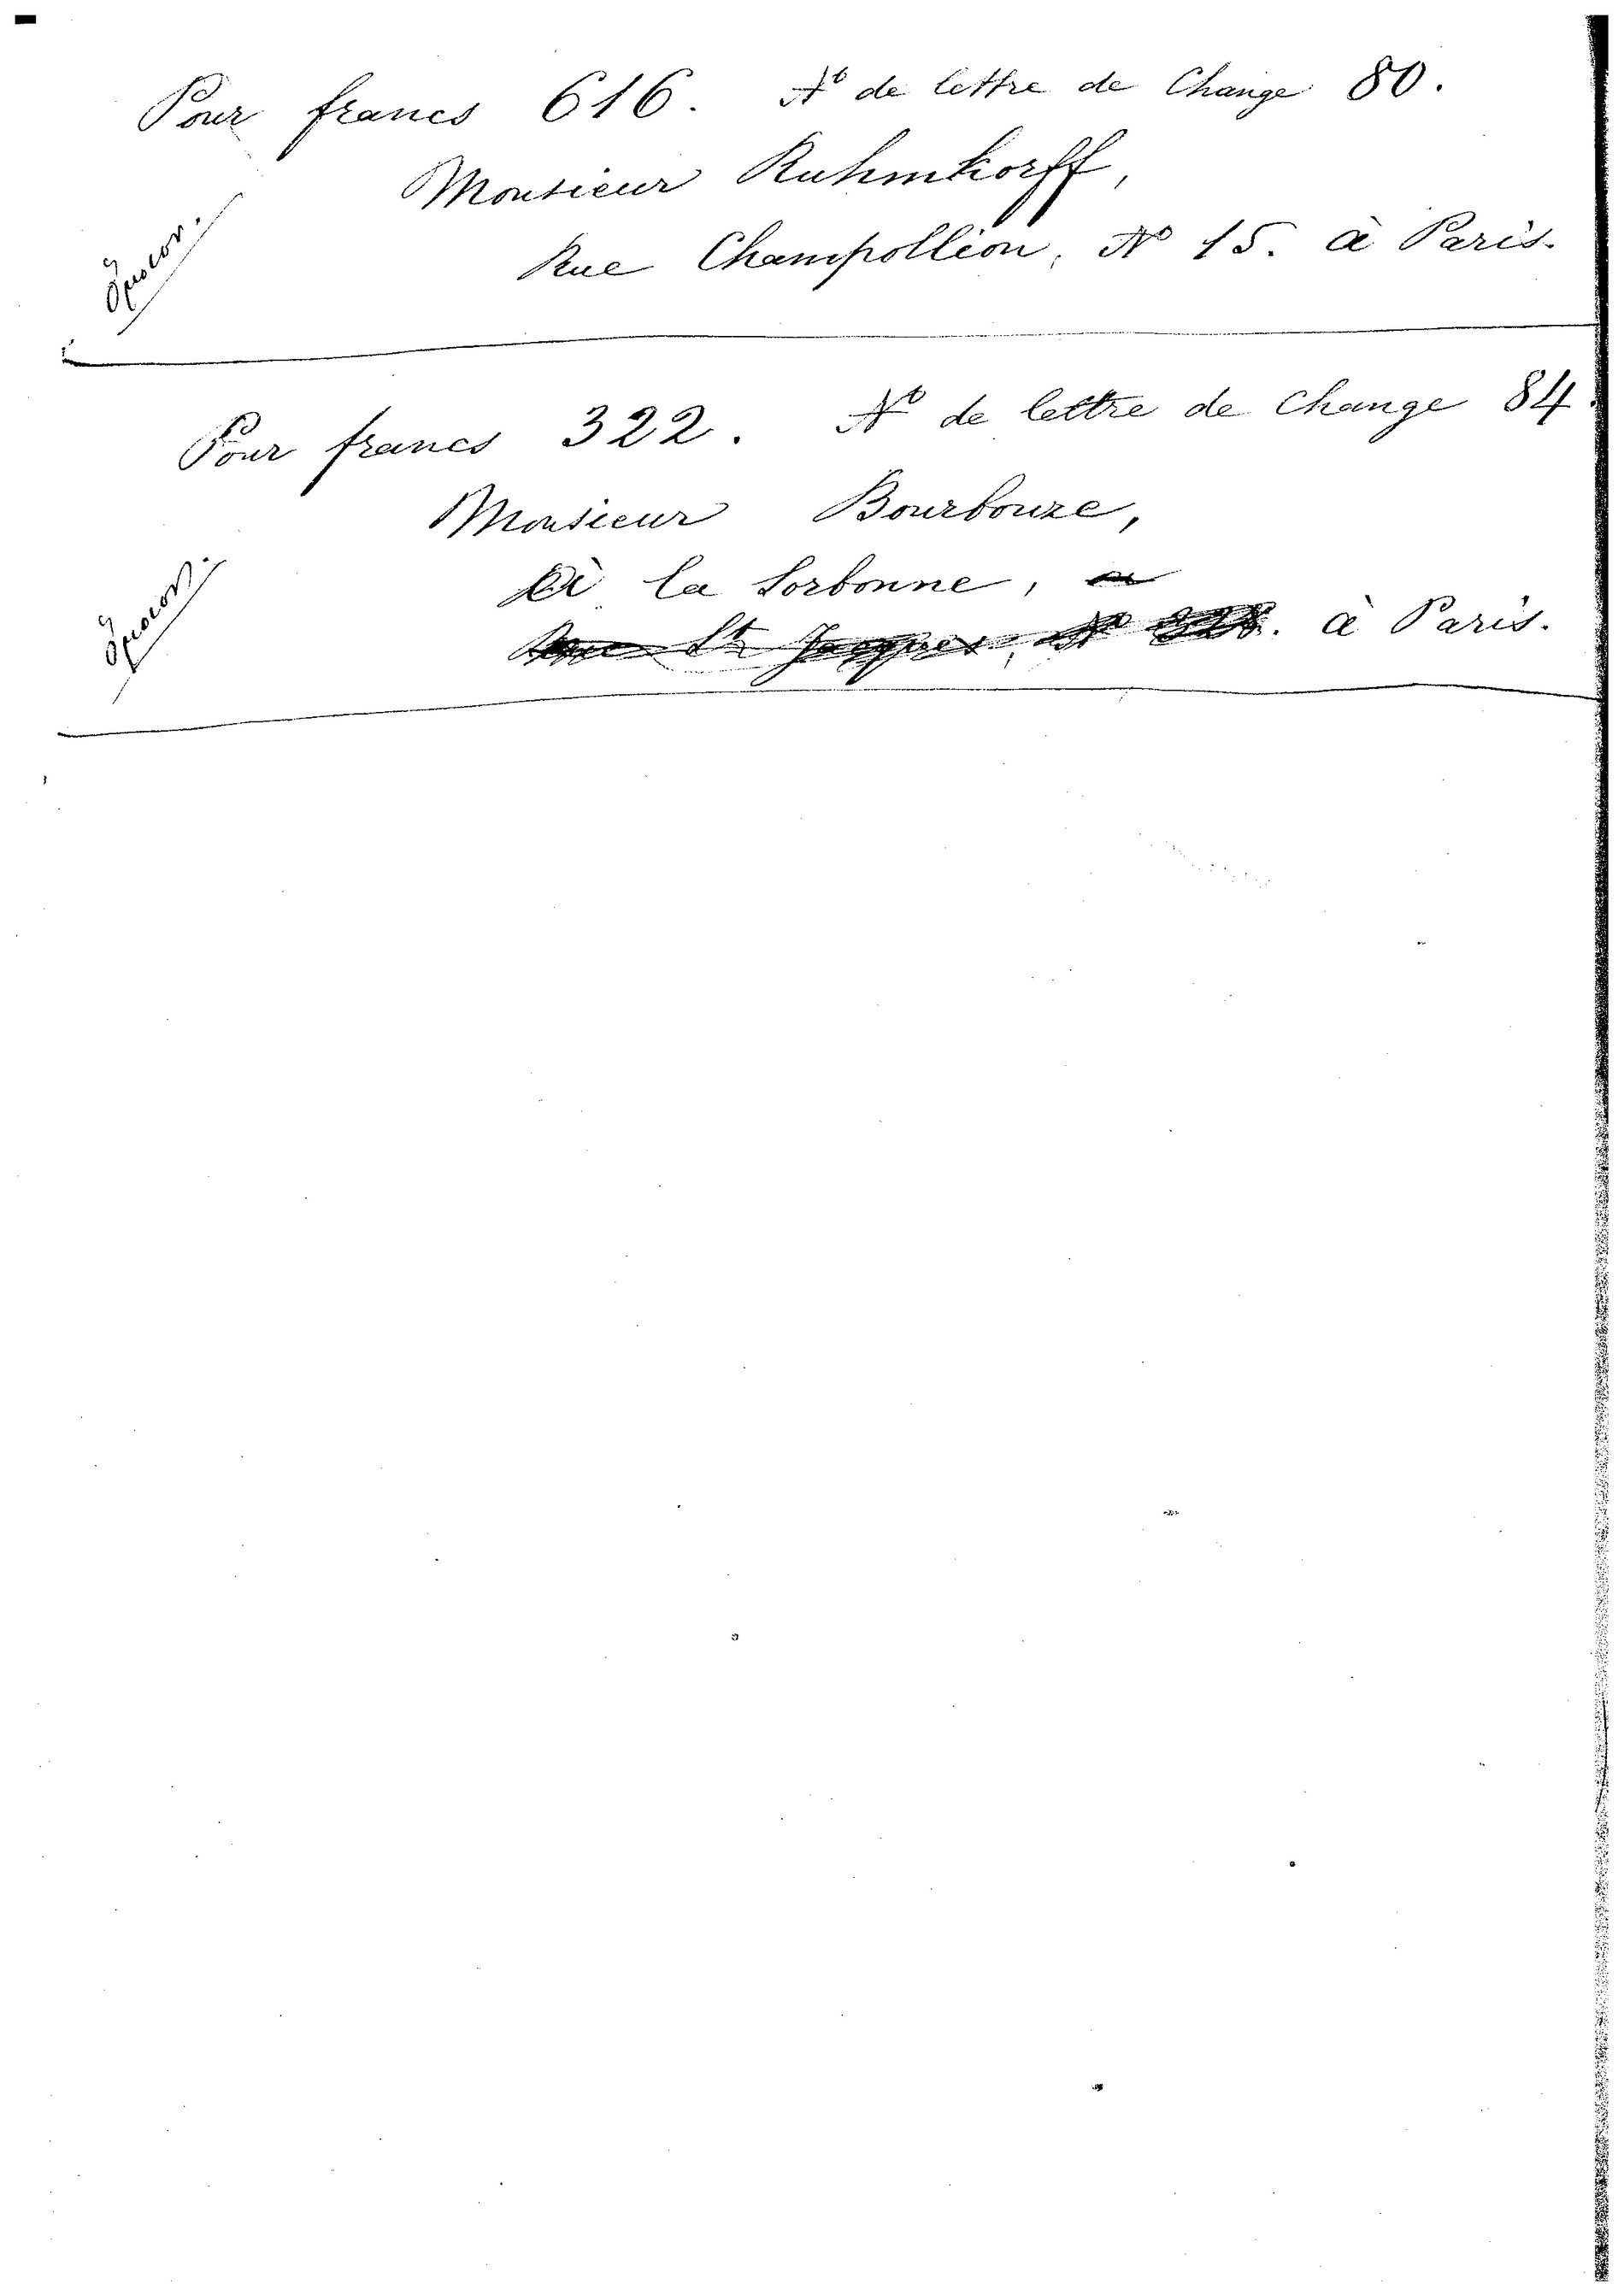 Pour francs 616. No de lettre de Change 80.
Monsieur Ruhmkorff,
Rue Champollion, No 15. à Paris.
Pour francs 322. No de lettre de Change 84.
Monsieur Bourbouze,
à la Sorbonne,
Rue St Jacques, No . à Paris.